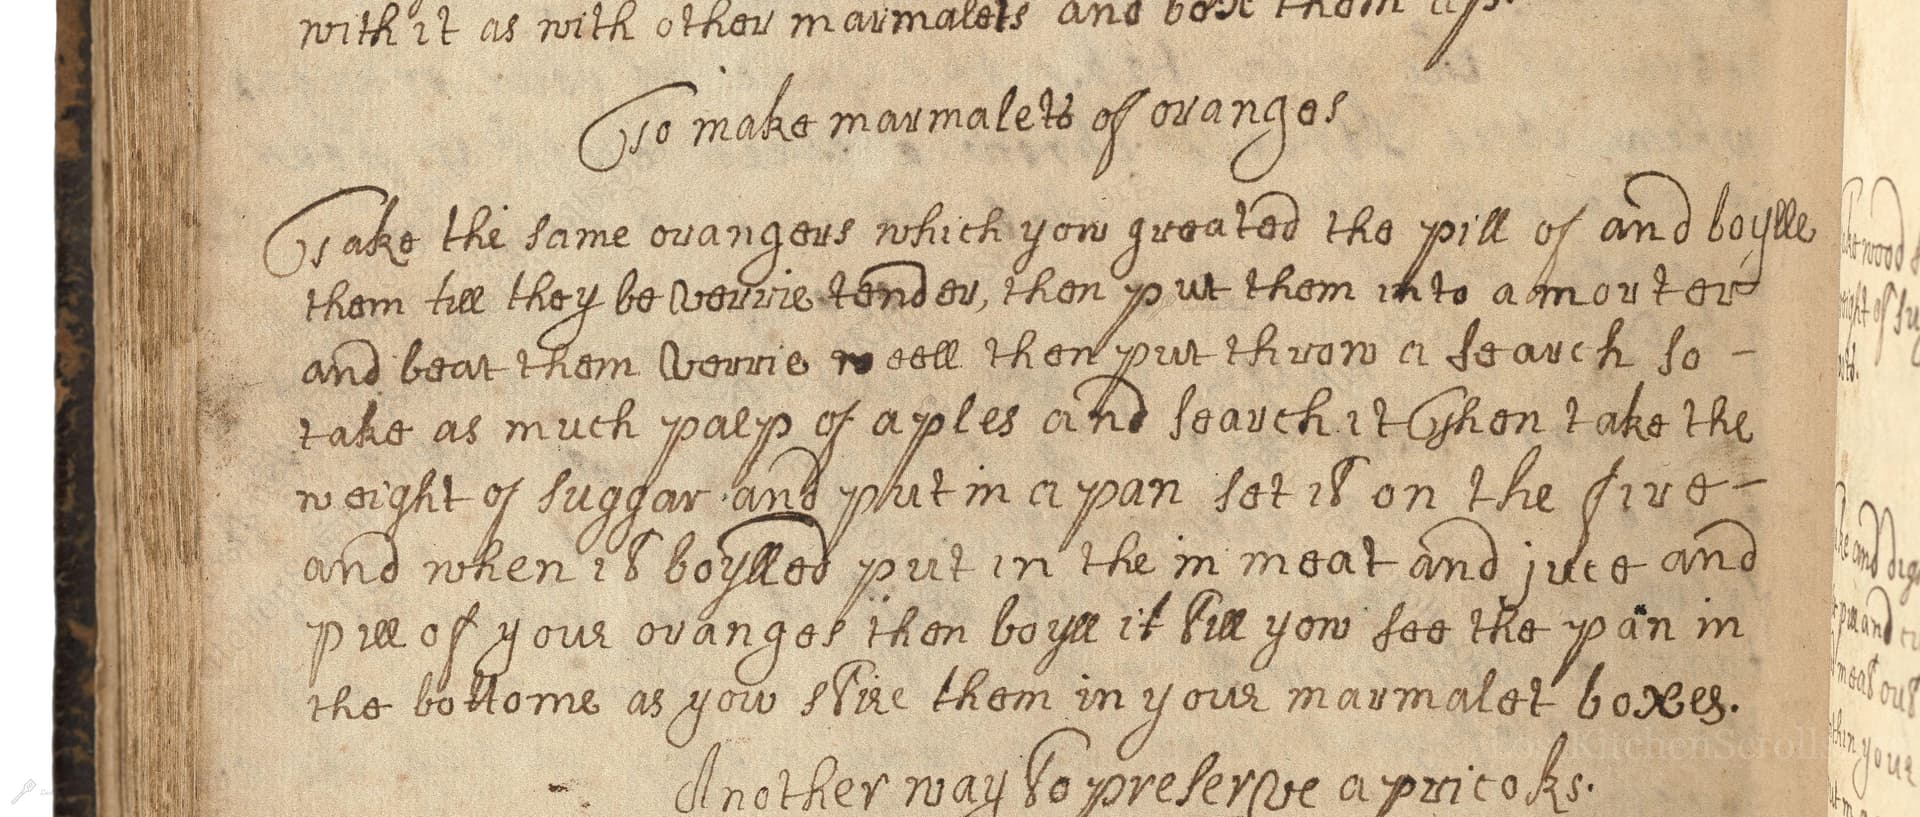 with it as with other marmalets and box them up.
To make marmalets of oranges
Take the same orangers which yow greated the pill of and boylle
them till they be verrie tender, then put them into a morter
and beat them verrie weell then put throw a search so -
take as much palp of aples and search it Then take the
weight of suggar and put in a pan set it on the fire -
and when it boylled put in the in meat and juce and
pill of your oranges then boyll it till yow see the pan in
the bottome as yow stire them in your marmalet boxes.
Another way to preserve apricoks.